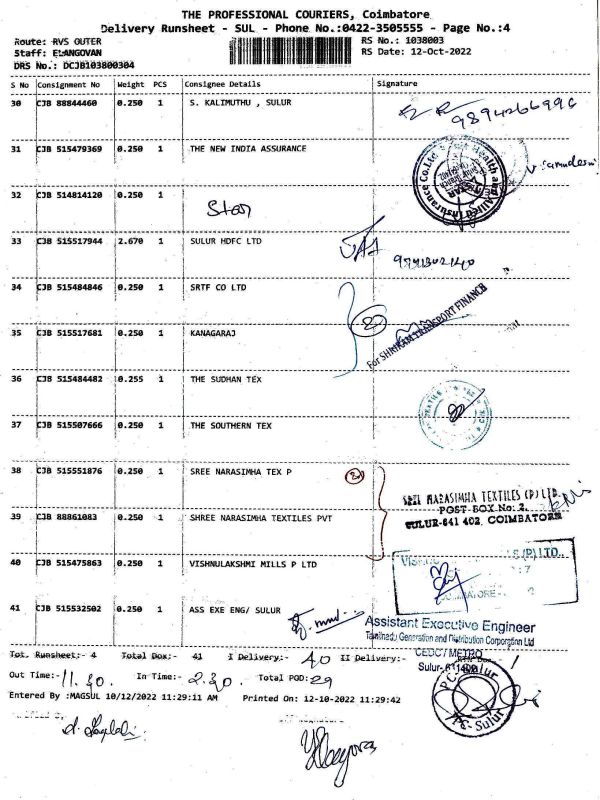 THE PROFESSIONAL COURIERS, Coimbatore
Delivery Runsheet - SUL - Phone No.:0422-3505555 - Page No.:4
Route: RVS OUTER
RS No.: 1038003
Staff: ELANGOVAN
RS Date: 12-Oct-2022
DRS No.: DCJB103800304
S No Consignment No Weight PCS Consignee Details Signature
30 CJB 88844460 0.250 1 S. KALIMUTHU , SULUR
9894266996
31 CJB 515479369 0.250 1 THE NEW INDIA ASSURANCE
Health and Allied Insurance Co.Ltd
32 CJB 514814120 0.250 1
Star
33 CJB 515517944 2.670 1 SULUR HDFC LTD
34 CJB 515484846 0.250 1 SRTF CO LTD
For SHRIRAM TRANSPORT FINANCE
35 CJB 515517681 0.250 1 KANAGARAJ
36 CJB 515484482 0.255 1 THE SUDHAN TEX
37 CJB 515507666 0.250 1 THE SOUTHERN TEX
38 CJB 515551876 0.250 1 SREE NARASIMHA TEX P
SREE NARASIMHA TEXTILES (P) LTD.
POST BOX No: 2,
SULUR-641 402, COIMBATORE
39 CJB 88861083 0.250 1 SHREE NARASIMHA TEXTILES PVT
40 CJB 515475863 0.250 1 VISHNULAKSHMI MILLS P LTD
41 CJB 515532502 0.250 1 ASS EXE ENG/ SULUR
Assistant Executive Engineer
Tamilnadu Generation and Distribution Corporation Ltd
CEDC / METRO
Tot. Runsheet:- 4 Total Dox:- 41 I Delivery:- 40 II Delivery:-
Out Time:- 11.30 In Time:- 2.30 Total POD: 29
Entered By :MAGSUL 10/12/2022 11:29:11 AM Printed On: 12-10-2022 11:29:42
PC-Sulur